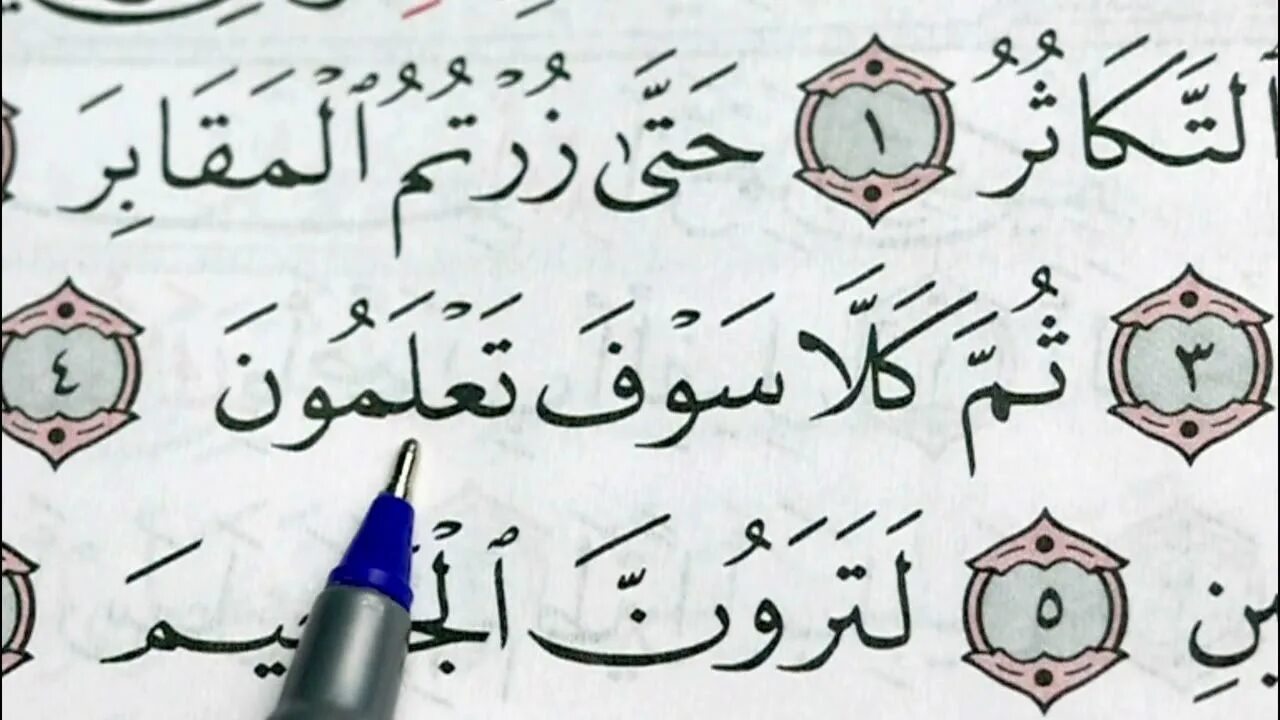 ٱلتَّكَاثُرُ ١ حَتَّىٰ زُرْتُمُ ٱلْمَقَابِرَ
٣ ثُمَّ كَلَّا سَوْفَ تَعْلَمُونَ ٤
٥ لَتَرَوُنَّ ٱلْجَحِيمَ